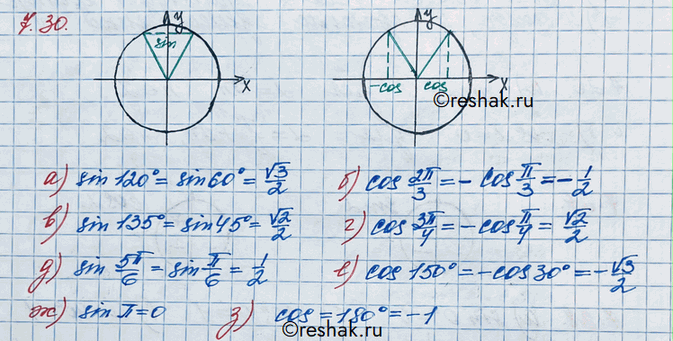 7.30.
y
sin
x
y
-cos cos
x
©reshak.ru
а) sin 120° = sin 60° = √3/2 б) cos 2π/3 = - cos π/3 = - 1/2
в) sin 135° = sin 45° = √2/2 г) cos 3π/4 = - cos π/4 = √2/2
д) sin 5π/6 = sin π/6 = 1/2 е) cos 150° = - cos 30° = - √3/2
ж) sin π = 0 з) cos = 180° = -1
©reshak.ru